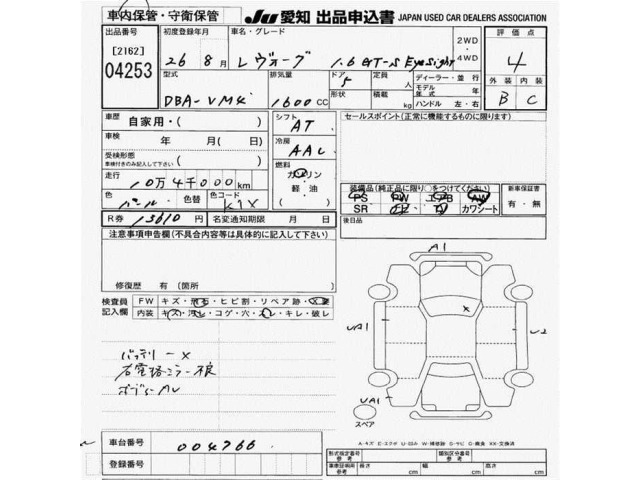 車内保管・守衛保管 JU 愛知 出品申込書 JAPAN USED CAR DEALERS ASSOCIATION
出品番号 初度登録年月 車名・グレード 2WD・4WD 評価点
[2162] 04253 26年 8月 レヴォーグ 1.6 GT-S EyeSight 4
型式 排気量 ドア 定員 ディーラー・並行 外装 内装
DBA-VM4 1600CC 5 人 モデル年式 年 B C
形状 積載 kg ハンドル 左・右
車歴 自家用・( ) シフト AT セールスポイント(正常に機能するものに限ります)
車検 年 月( )日 冷房 AAC
受検形態 車検付きのみ記入して下さい ( ) 燃料 ガソリン・軽油
走行 10万4千000km ( )
色 パール 色替 色コード K1X
装備品(純正品に限り○をつけてください) 新車保証書
PS PW エアB AW 有・無
SR カワシート
R券 13610円 名変通知期限 月 日 後日品
注意事項申告欄(不具合内容等は具体的に記入して下さい)
A1
修復歴 有(箇所 )
検査員記入欄 FW キズ・飛石・ヒビ割・リペア跡・
内装 キズ・汚れ・コゲ・穴・スレ・キレ・破レ
UA1 X
バッテリー X
右電格ミラー不良
UA1
スペア
A-キズ E-エクボ U-凹み W-補修跡 S-サビ C-腐食 XX-交換済
車台番号 004766
登録番号
形式指定番号 参考 類別区分番号 参考
車庫証明用 参考 長さ cm 幅 cm 高さ cm